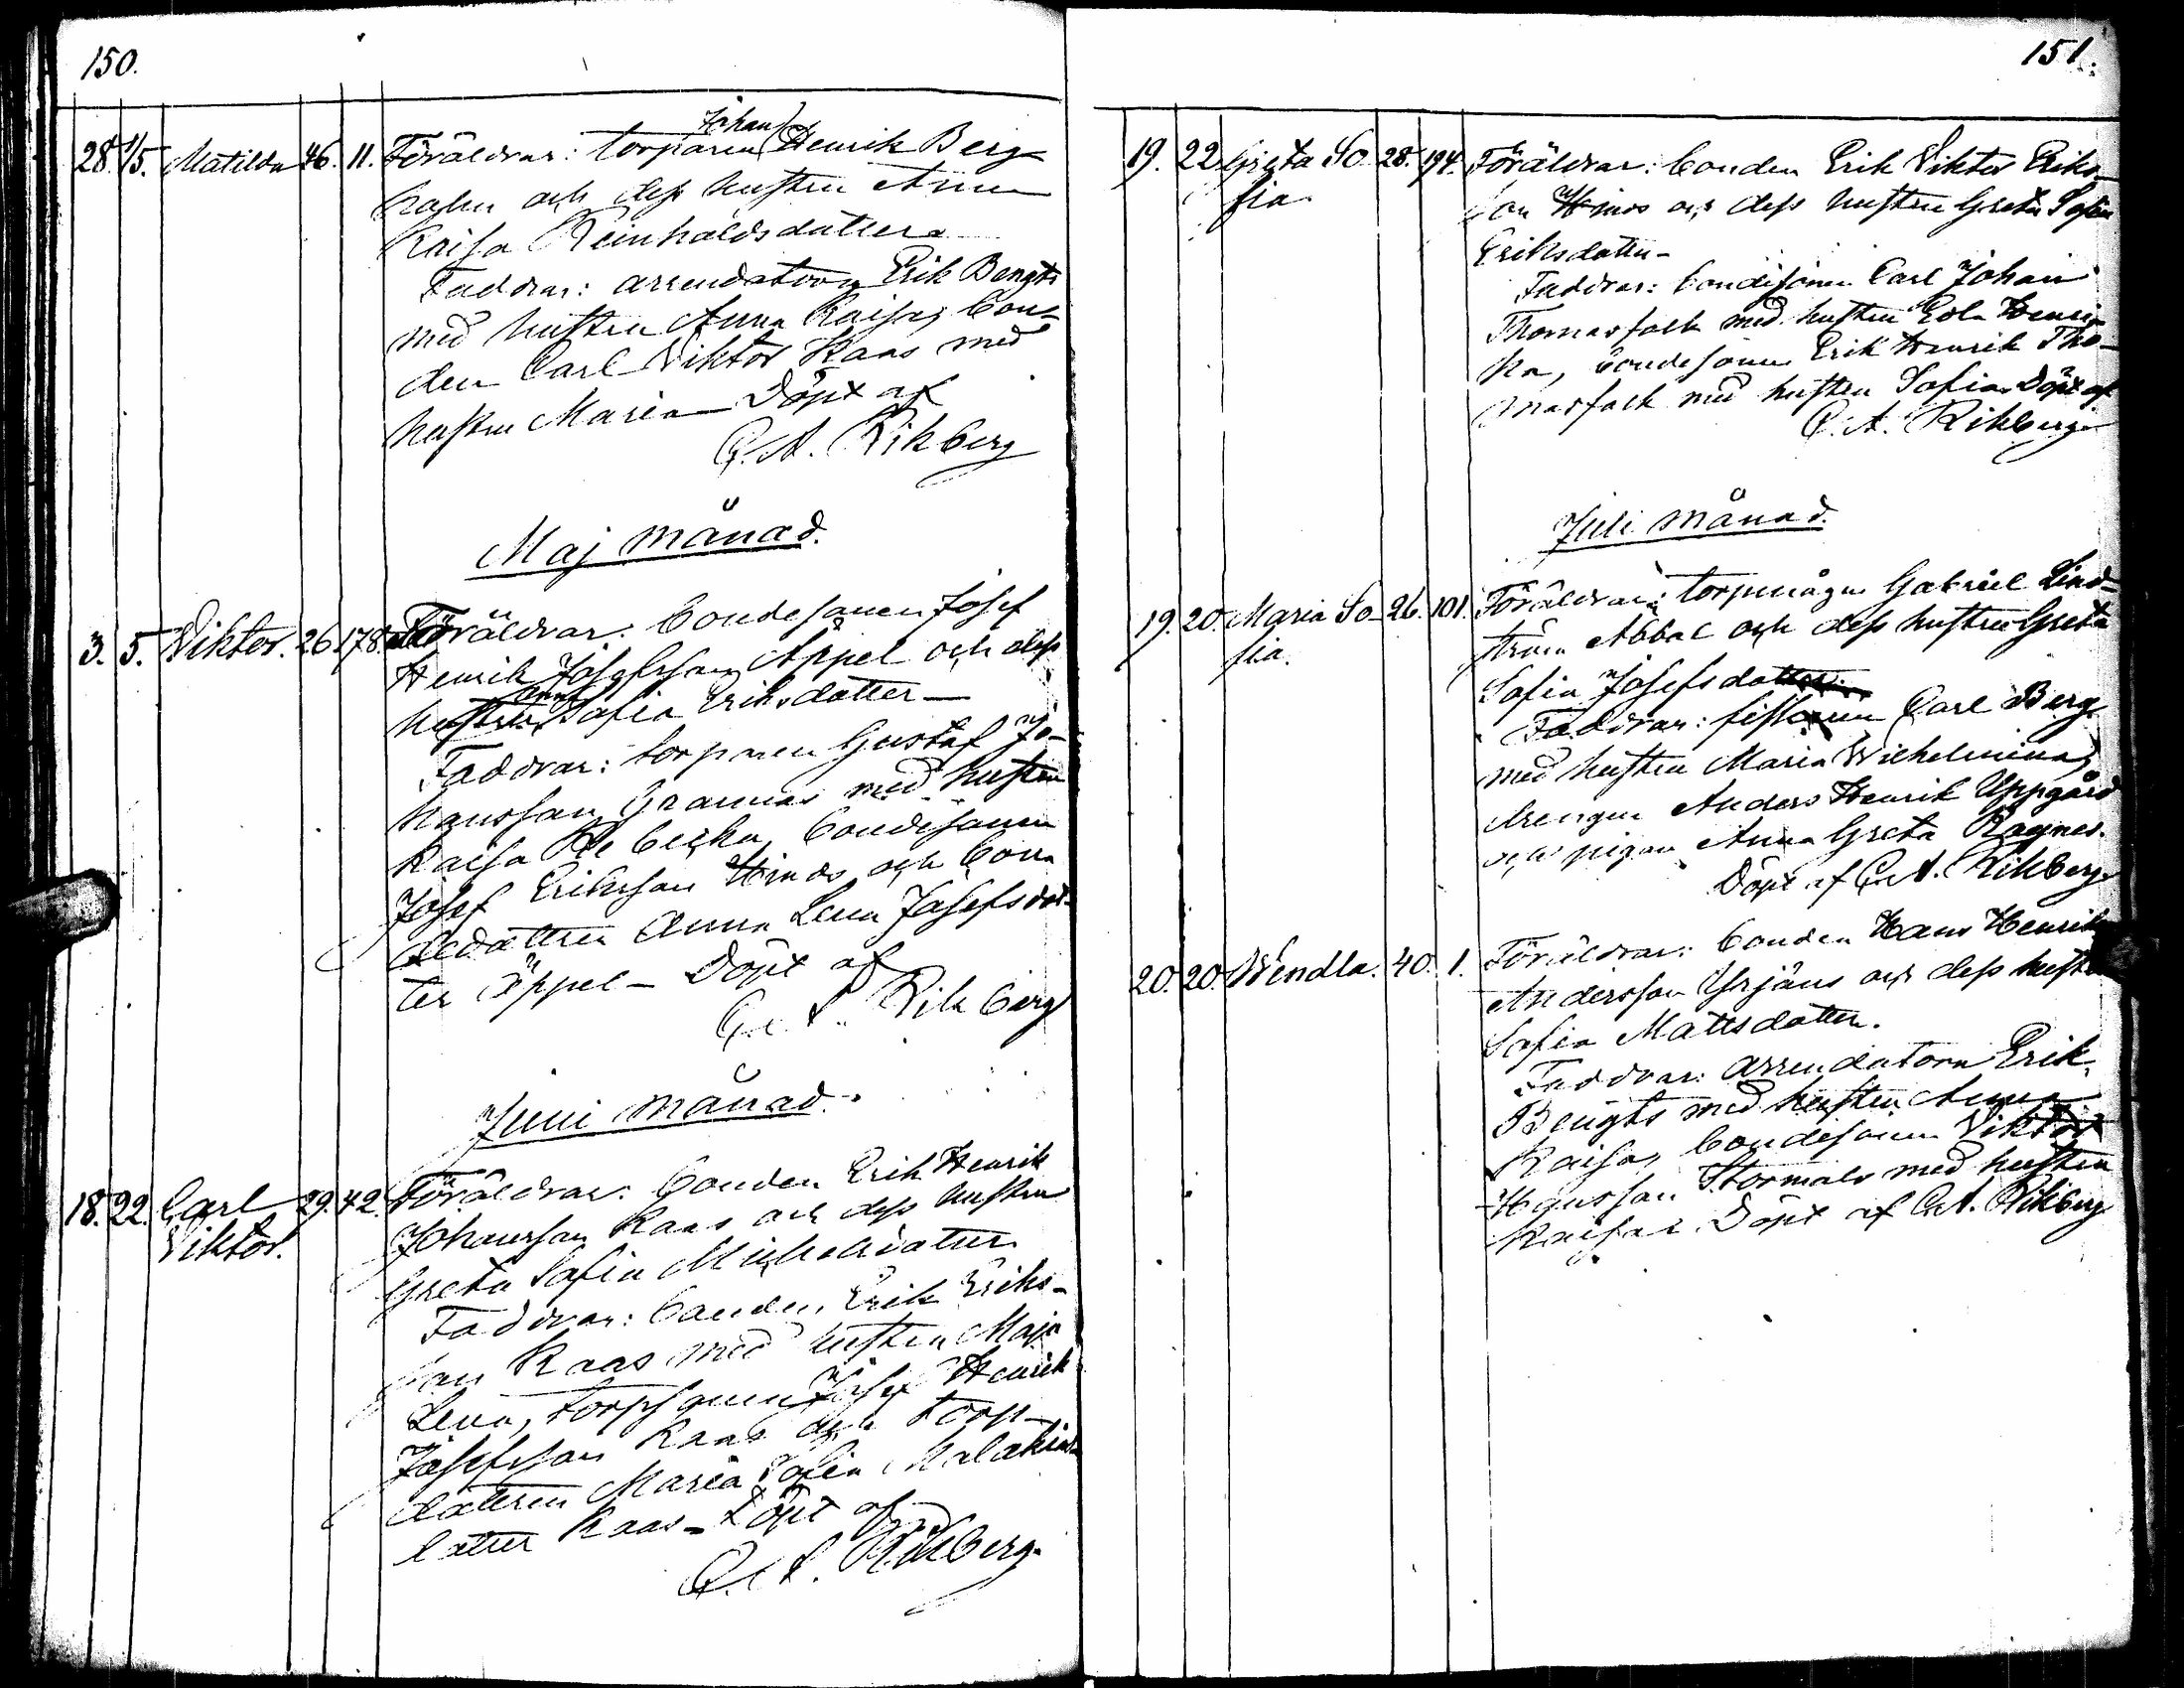 150.
28. 1/5. Matilda 46. 11. Föräldrar: torparen Johan Henrik Berg
och dess hustru Anna
Kaisa Reinholdsdotter
Faddrar: arrendatorn Erik Bengts
med hustru Anna Kaisa, bon-
den Carl Viktor Kaas med
hustru Maria — Döpt af
C. A. Rikberg
Maj månad.
3. 5. Viktor. 26. 178. Föräldrar: bondesonen Josef
Henrik Josefsson Äppel och dess
hustru Anna Sofia Eriksdotter —
Faddrar: torparen Gustaf Jo-
hansson Grannas med hustru
Kaisa Rebecka, bondesonen
Josef Eriksson Hinds och bon-
dedottren Anna Lena Josefsdot-
ter Äppel — Döpt af
C. A. Rikberg
Juni månad.
18. 22. Carl 29. 42. Föräldrar: bonden Erik Henrik
Viktor. Johansson Kaas och dess hustru
Greta Sofia Michelsdotter
Faddrar: bonden Erik Eriks-
son Kaas med hustru Maja
Lena, torpsonen Josef Henrik
Josefsson Kaas och torp-
dottren Maria Sofia Malakias
dotter Kaas — Döpt af
C. A. Rikberg.
151.
19. 22. Greta So- 28. 194. Föräldrar: bonden Erik Viktor Eriks-
fia. son Hinds och dess hustru Greta Sofia
Eriksdotter —
Faddrar: bondesonen Carl Johan
Thomasfolk med hustru Eva Henri-
ka, bondesonen Erik Henrik Tho-
masfolk med hustru Sofia. Döpt af
C. A. Rikberg
Juli månad.
19. 20. Maria So- 26. 101. Föräldrar: torpmågen Gabriel Lind-
fia. ström Abbal och dess hustru Greta
Sofia Josefsdotter
Faddrar: Carl Berg
med hustru Maria Wilhelmina,
drengen Anders Henrik Uppgård
och pigan Anna Greta Ragnes.
Döpt af C. A. Rikberg.
20. 20. Wendla. 40. 1. Föräldrar: bonden Hans Henrik
Andersson Yrjäns och dess hustru
Sofia Mattsdotter.
Faddrar: arrendatorn Erik
Bengts med hustru Anna
Kaisa, bondesonen Viktor
Hansson Stormals med hustru
Kaisa. Döpt af C. A. Rikberg